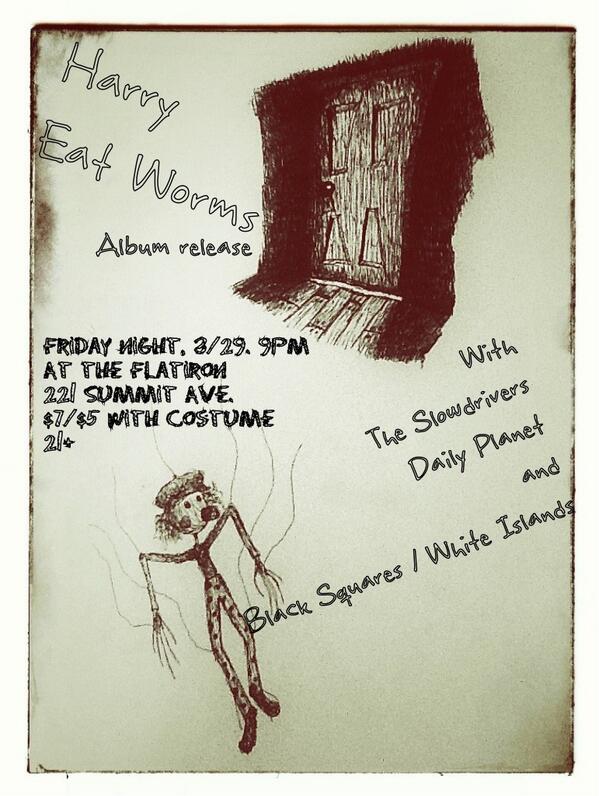 Harry
Eat Worms
Album release
FRIDAY NIGHT, 3/29. 9PM
AT THE FLATIRON
221 SUMMIT AVE.
$7/$5 WITH COSTUME
21+
With
The Slowdrivers
Daily Planet
and
Black Squares / White Islands